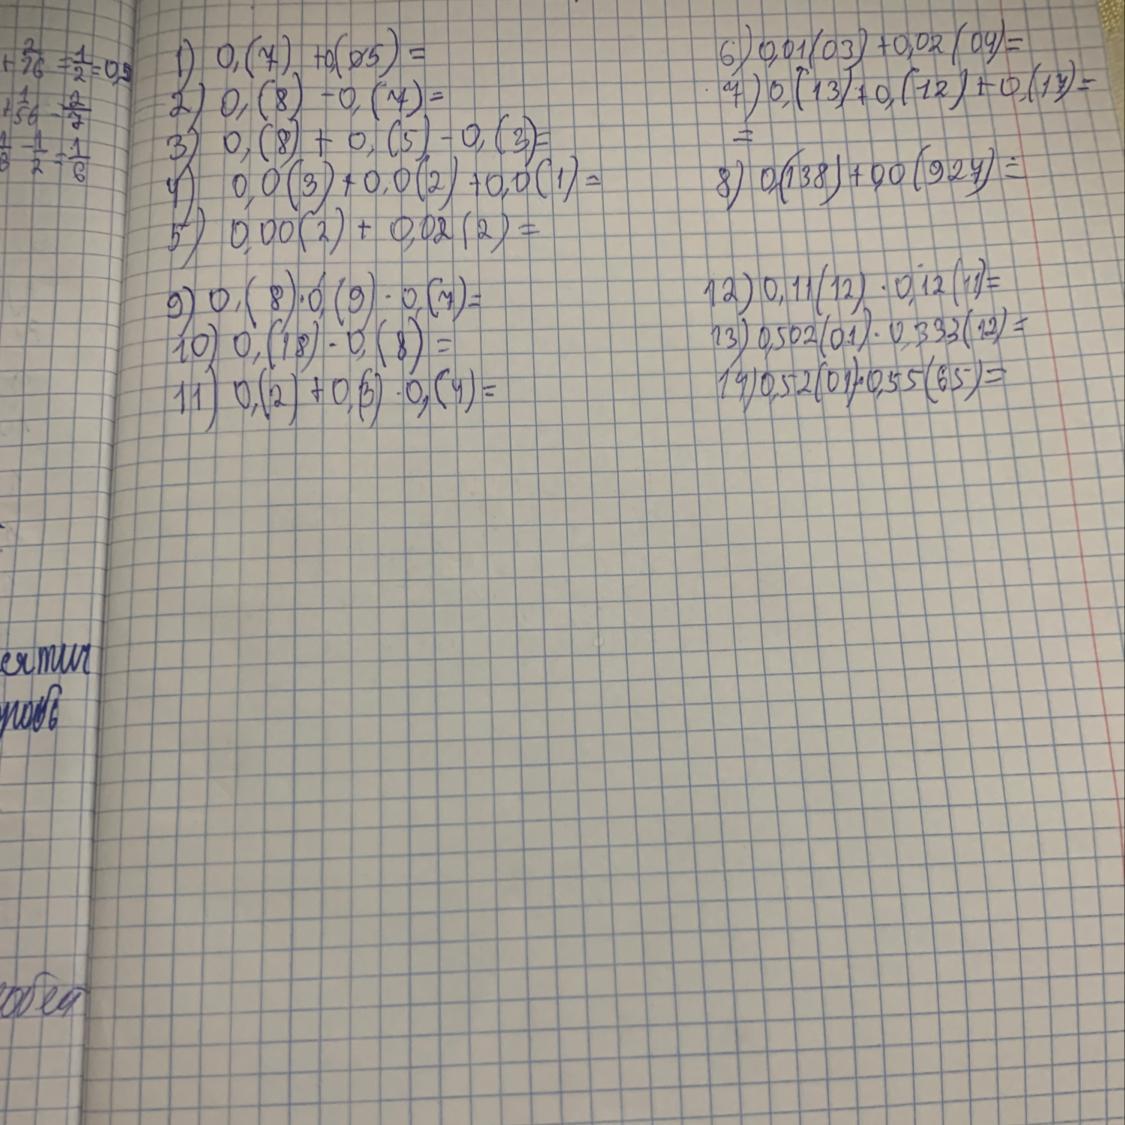 + 2/26 = 1/2 = 0,5
+ 1/56 - 2/7
- 1/2 = 1/6
1) 0,(7) + 0,(05) =
2) 0,(8) - 0,(7) =
3) 0,(8) + 0,(5) - 0,(3) =
4) 0,0(3) + 0,0(2) + 0,0(1) =
5) 0,00(2) + 0,02(2) =
9) 0,(8) · 0,(9) · 0,(7) =
10) 0,(18) - 0,(8) =
11) 0,(2) + 0,(3) · 0,(4) =
6) 0,01(03) + 0,02(04) =
7) 0,(13) + 0,(12) + 0,(17) =
=
8) 0,(138) + 0,0(927) =
12) 0,11(12) · 0,12(11) =
13) 0,502(01) · 0,333(12) =
14) 0,52(01) · 0,55(65) =